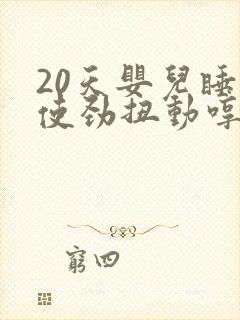 20天嬰兒睡
使勁扭動哼
窮四